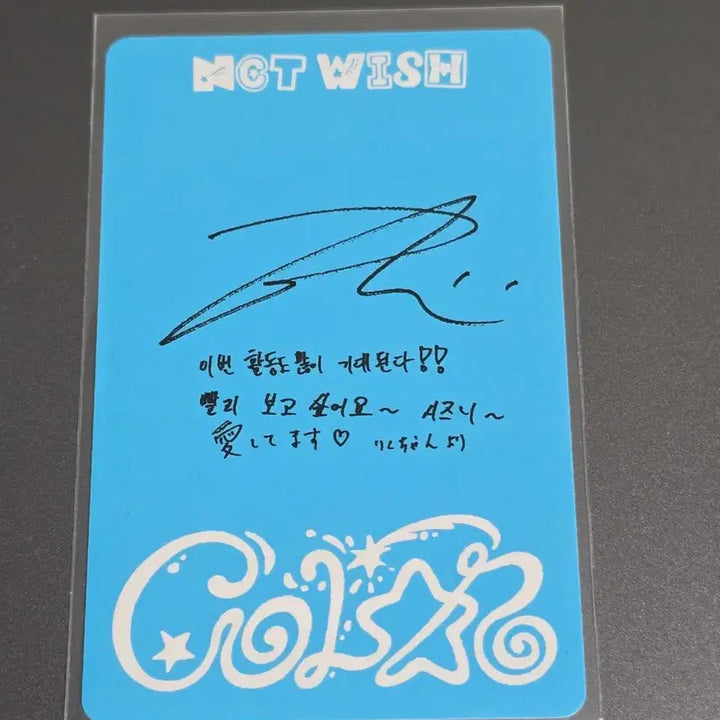 NCT WISH
이번 활동도 많이 기대된다!!
빨리 보고 싶어요~ 시즈니~
愛してます♡ りくちゃんより
COLOR